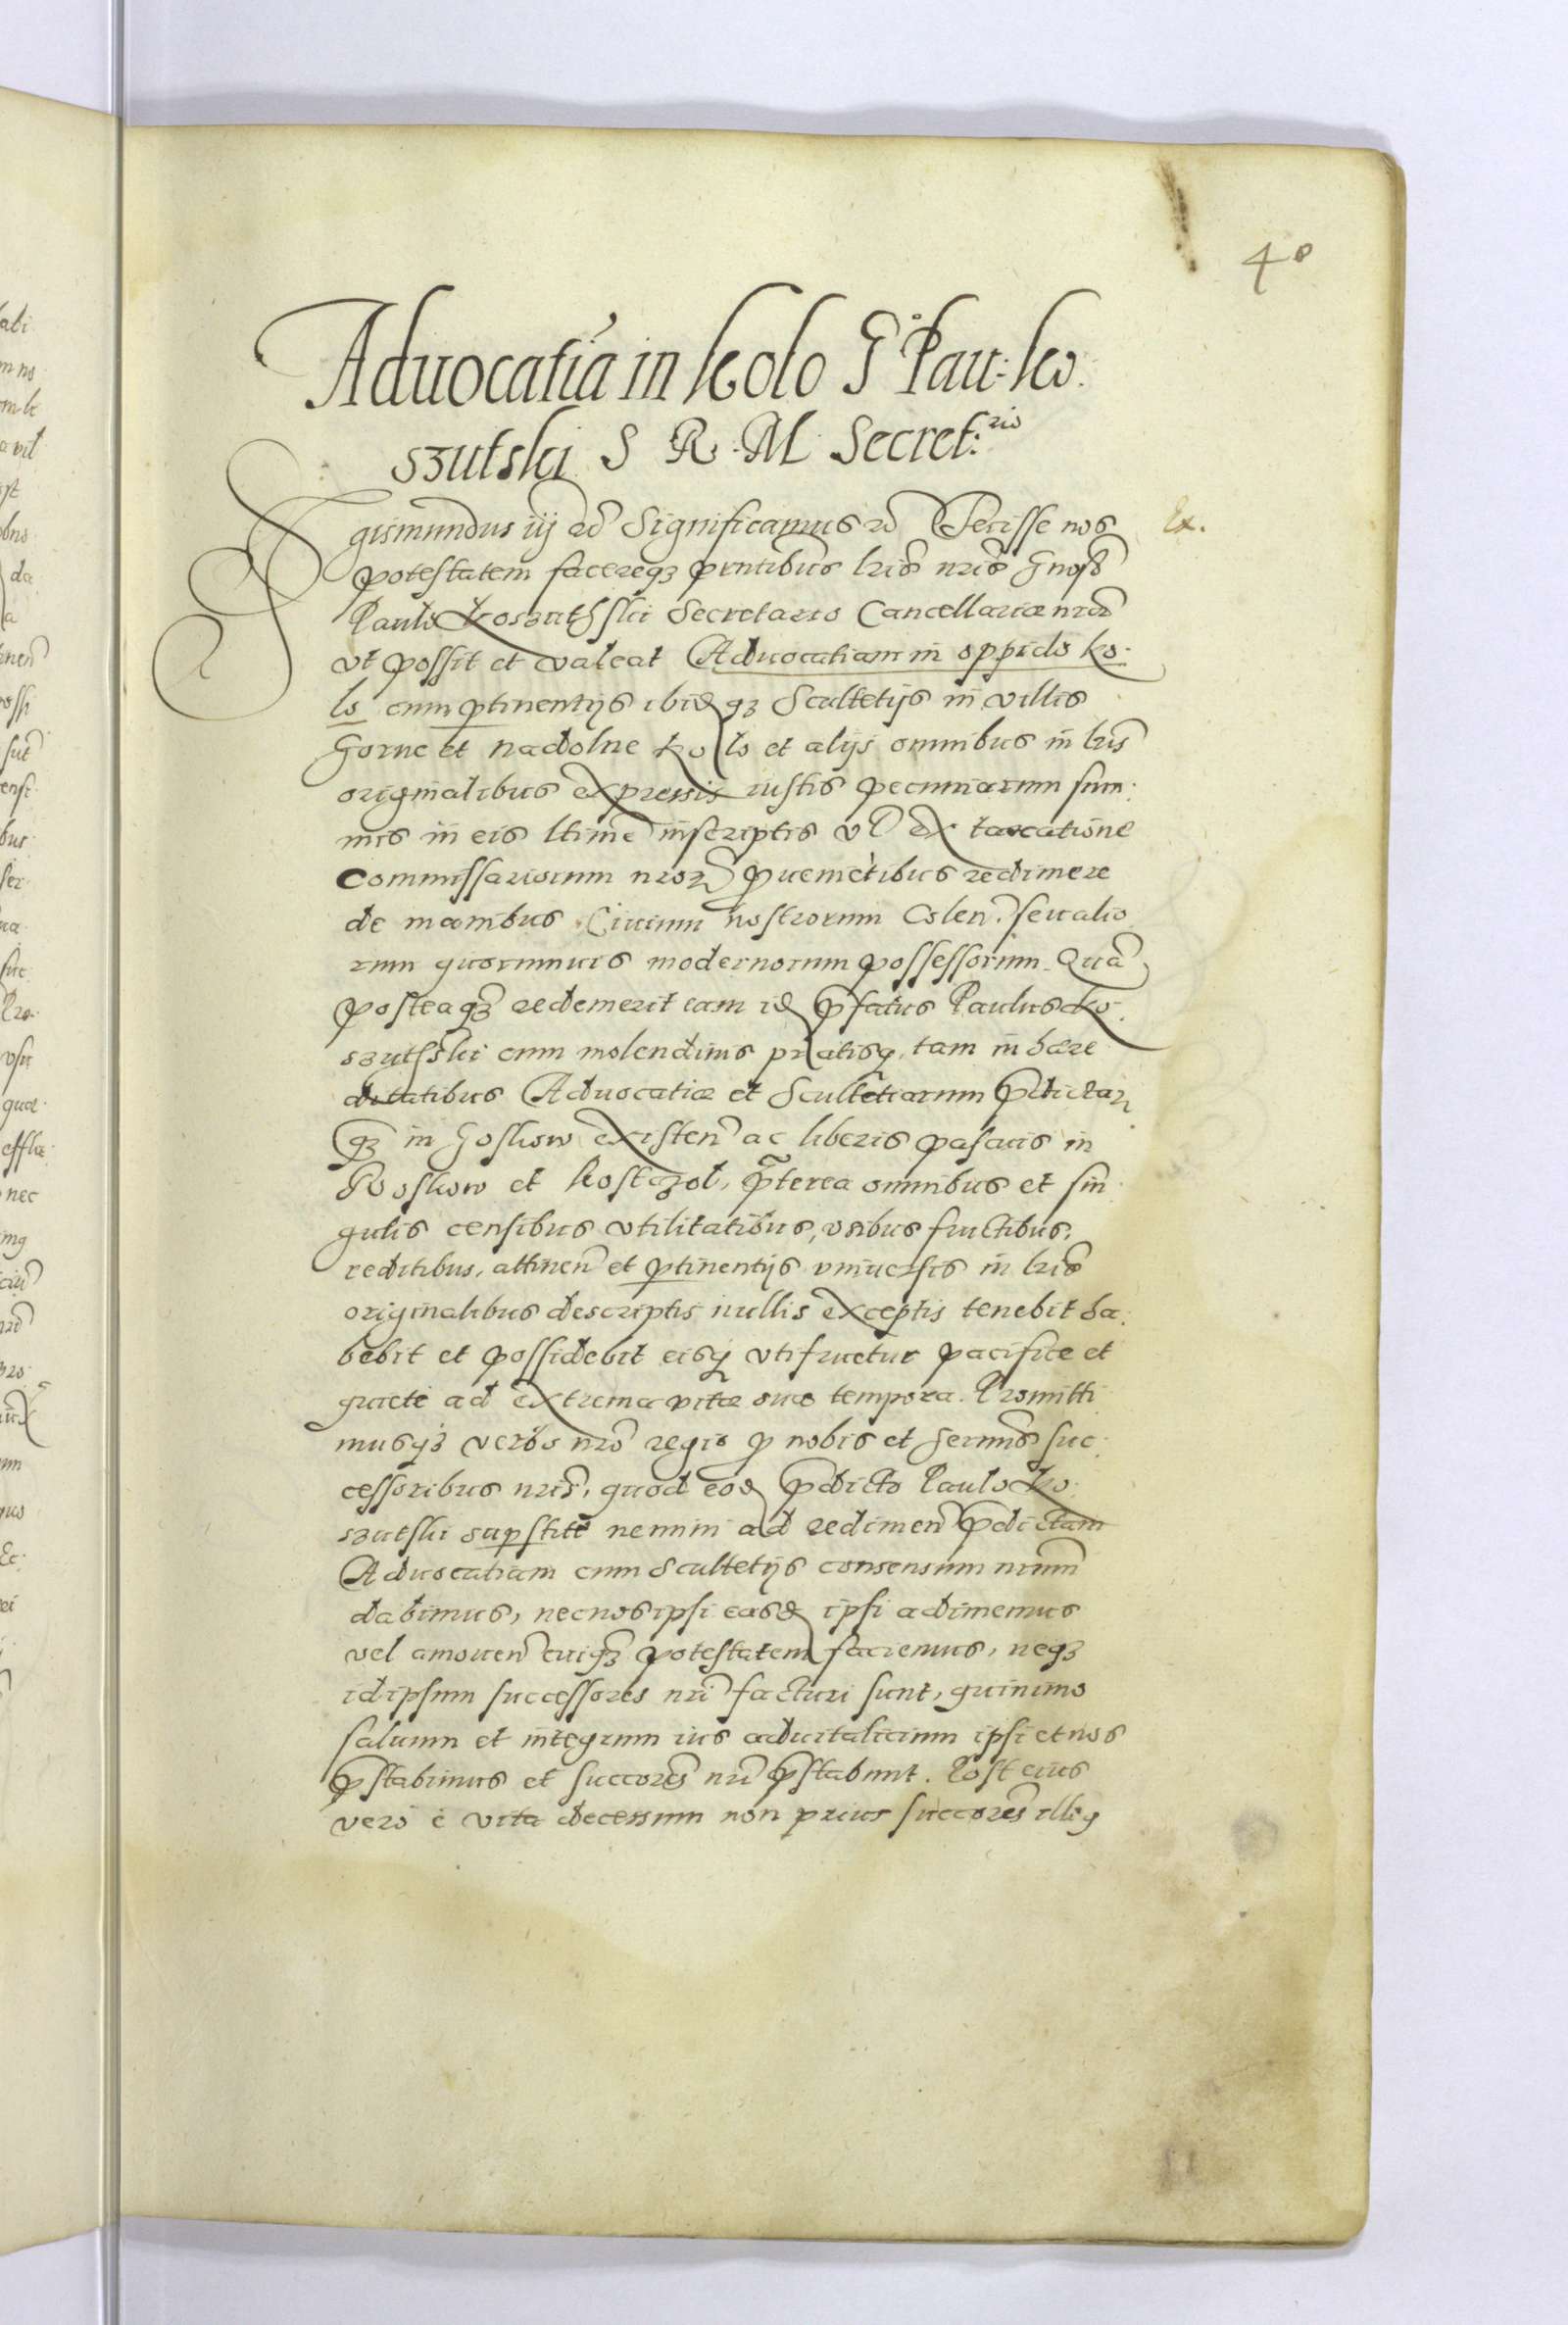 40
Aduocatia in Kolo G. Pau: Ko
szutski S R. M. Secret:rio
Sigismundus iij etc Significamus etc Fecisse nos
Ex.
potestatem facereq3 pntibus lris nris Gnoso
Paulo Koszuthski Secretario Cancellariae nrae
vt possit et valeat Aduocatiam in oppido Ko
lo cum ptinentijs ibidq3 Scultetijs in villis
Gorne et nadolne Kolo et alijs omnibus in lris
originalibus expressis iustis pecuniarum sum:
mis in eis ltime inscriptis vl ex taxatione
Commissariorum nror puenietibus redimere
de manibus Ciuium nostrorum Colen. seu alio
rum quorumuis modernorum possessorum. Quā
posteaq3 redemerit eam id pfatus Paulus Ko.
szuthski cum molendinis pratisq, tam in haere
ditatibus Aduocatiae et Scultetiarum pdictar
q3 in Goskow existen ac liberis pascuis in
Goskow et Kostrzol, pterea omnibus et sin
gulis censibus vtilitatibus, vsibus fructibus,
reditibus, attinen et ptinentijs vniuersis in lris
originalibus descriptis nullis exceptis tenebit ha:
bebit et possidebit eisq vtifruetur pacifice et
quiete ad extrema vitae suae tempora. Promitti
musq3 verbo nro regio p nobis et Sermis suc:
cessoribus nris, quod eod pdicto Paulo Ko:
szutski supstite nemini ad redimen pdictam
Aduocatiam cum Scultetijs consensum nrum
dabimus, nec nos ipsi easd ipsi adimemus
vel amouen cuiq3 potestatem faciemus, neq3
id ipsum successores nri facturi sunt, quinimo
saluum et integrum ius aduitalicium ipsi et nos
pstabimus et succores nri pstabunt. Post eius
vero e vita decessum non prius succores illeg